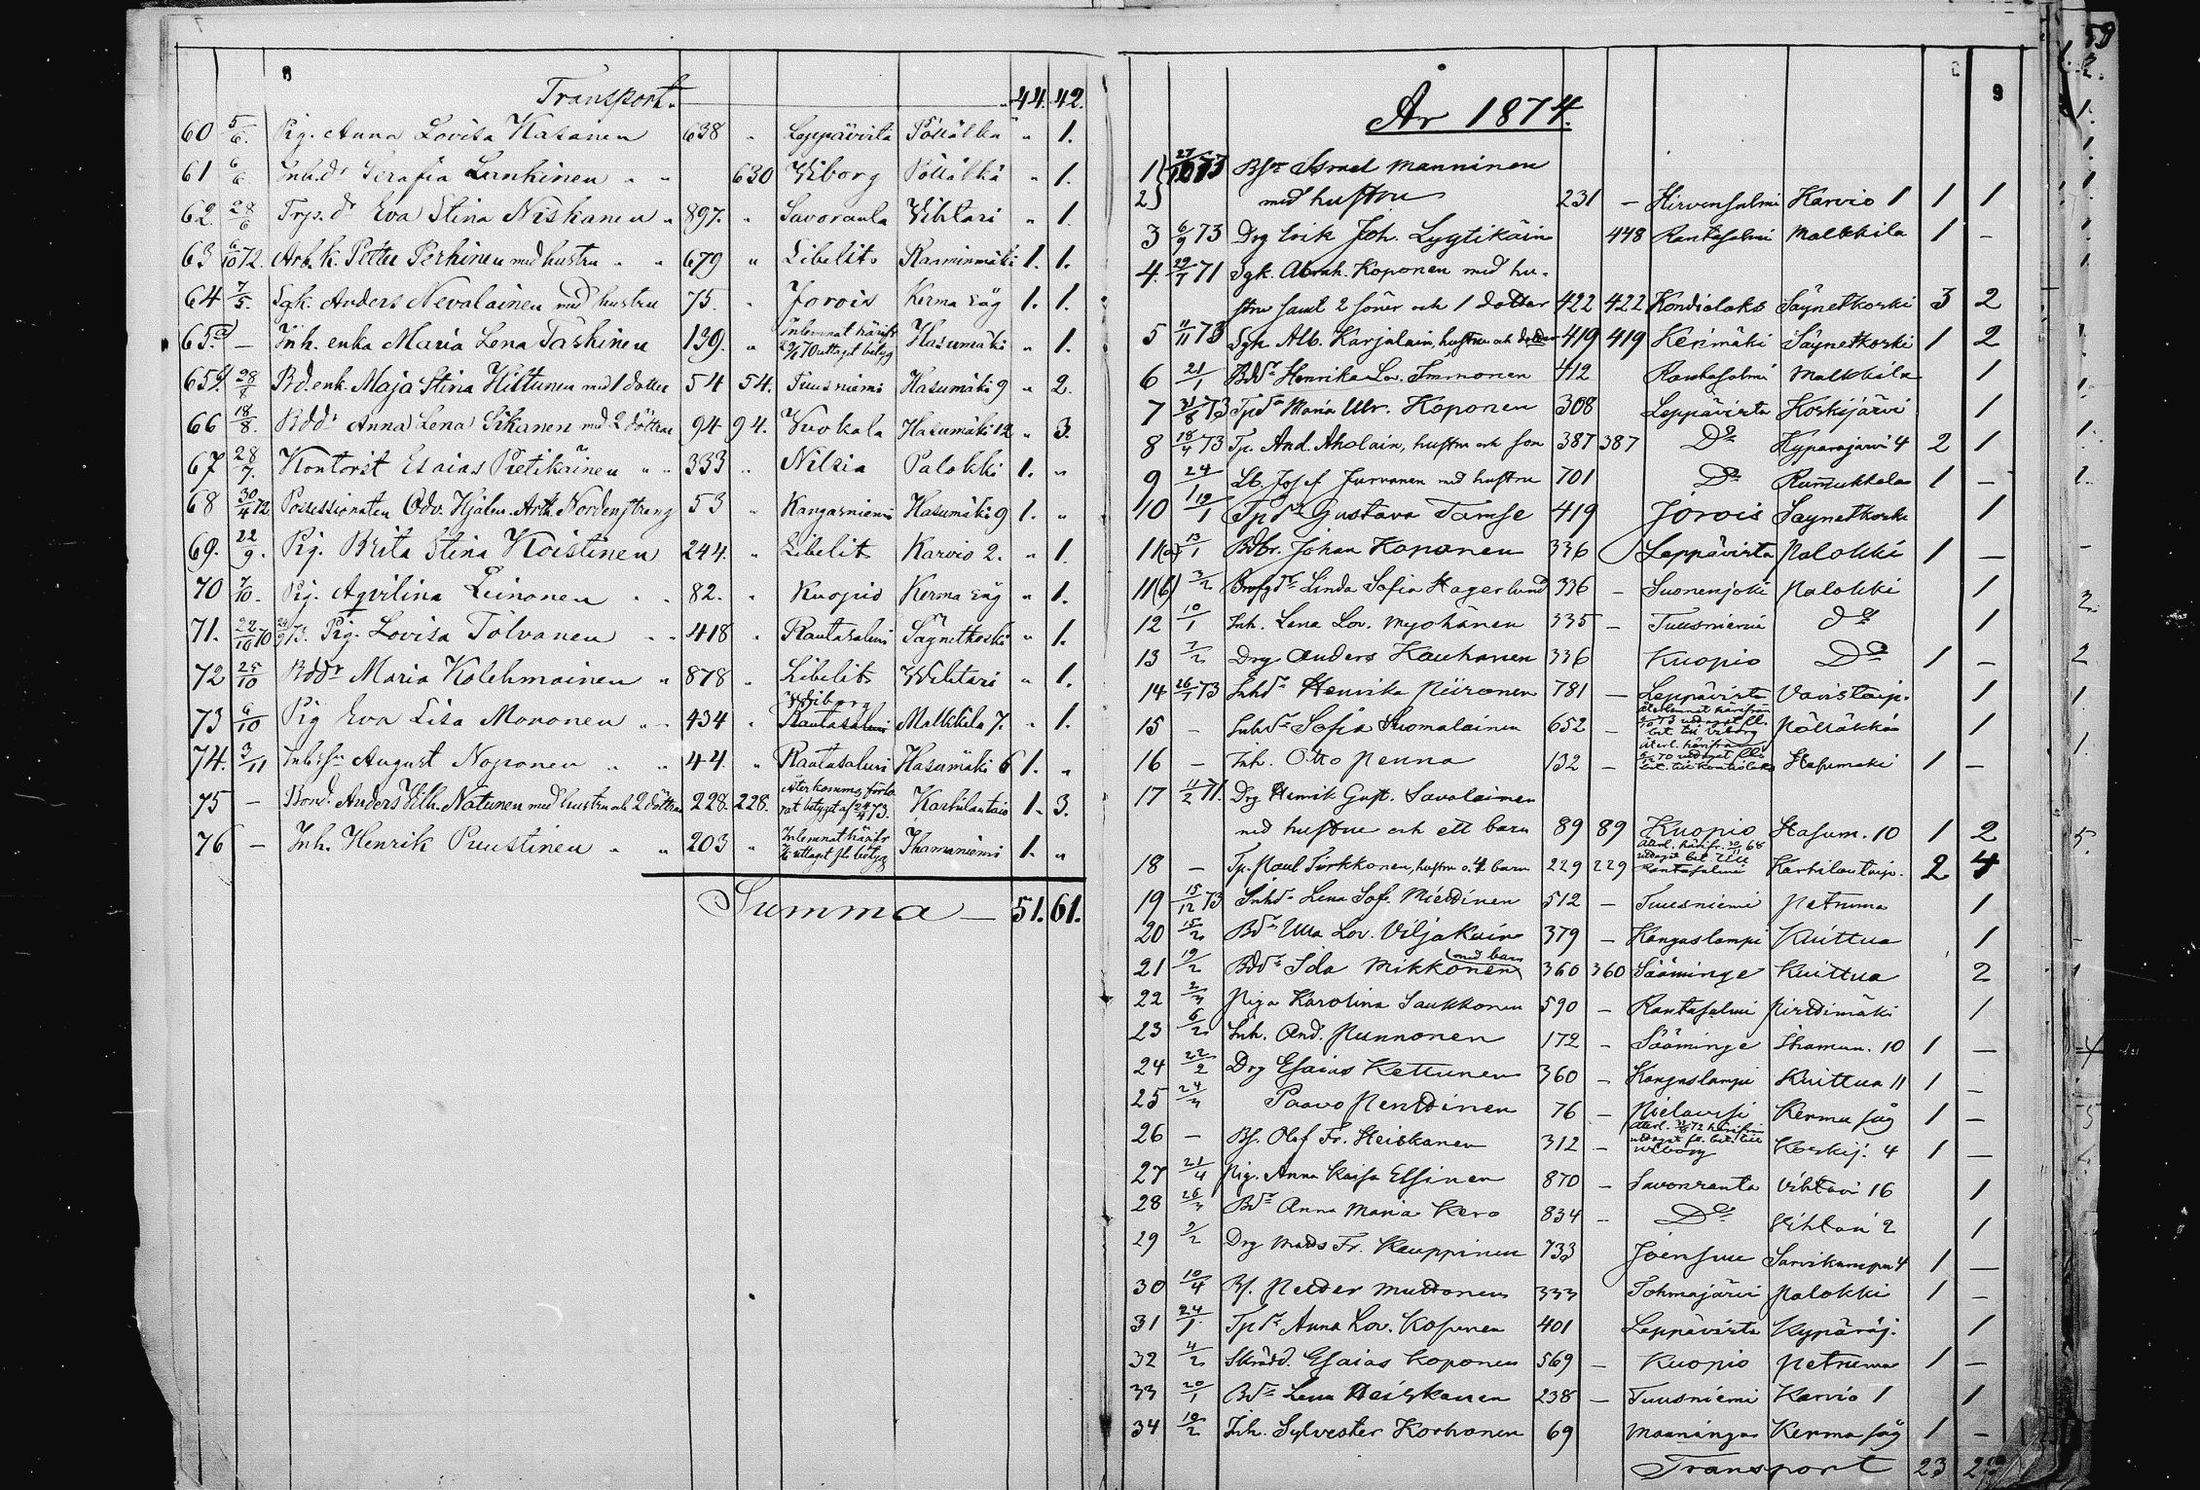 Transport. 44. 42.
60 5/6. Pig. Anna Lovisa Kasanen 638 " Leppävirta Pölläkkä " 1.
61 6/6 Inh.dr Serafia Lankinen " " 630 Wiborg Pölläkkä " 1.
62. 28/6 Trp.dr Eva Stina Niskanen " 897. " Savoranta Vihtari " 1
63 6/10 72. Arb.k. Petter Perhinen med hustru " " 679 " Libelits Raaminmäki 1. 1.
64 7/5. Sgk. Anders Nevalainen med hustru 75. " Jorois Kerma såg 1. 1.
65.a) — Inh. enka Maria Lena Taskinen 139. " Inlemnat härifr. uttaget betyg Hasumäki " 1.
65 28/8 Bd.enk. Maja Stina Hiltunen med 1 dotter 54 54. Tuusniemi Hasumäki 9 " 2.
66 18/8. Bddr Anna Lena Sikanen med 2 döttrar 94 94. Kuokala Hasumäki 12 " 3.
67 28/7. Kontorist Esaias Pietikäinen " " 333 " Nilsiä Palokki 1. "
68 30/4 72 Possessionaten Odv. Hjalm. Arth. Nordenstreng 53 " Kangasniemi Hasumäki 9 1. "
69. 22/9. Pig. Brita Stina Koistinen 244. " Libelits Karvio 2. " 1.
70 7/10. Pig. Aqvilina Leinonen " " 82. " Kuopio Kerma såg " 1.
71. 22/10 70 Pig. Lovisa Tolvanen " " 418 " Rautasalmi Säynetkoski " 1.
72 25/10 Bddr Maria Kolehmainen " 878 " Libelits Wihtari " 1.
73 6/10 Pig Eva Lisa Mononen " " 434 " Wiborg Rautasalmi Malkkila 7. " 1.
74. 3/11 Inh.sn August Noponen " " 44. " Rantasalmi Hasumäki 6 1. "
75 — Bond. Anders Wilh. Natunen med hustru och 2 döttrar 228. 228. återkomna, betyget af 24/4 73. Karhulantaip 1. 3.
76 — Inh. Henrik Puustinen " " 203 " Inlemnat härifr uttaget fl. betyg Ihamaniemi 1. "
Summa — 51. 61.
År 1874.
1 27/10 73 Bsn Israel Manninen
2 med hustru 231 — Hirvensalmi Karvio 1 1 1
3 6/9 73 Drg Erik Joh. Lyytikäin 448 Rantasalmi Malkkila 1 -
4. 29/7 71 Sgk. Abrah. Koponen med hu-
stru samt 2 söner och 1 dotter 422 422 Kondiolaks Säynetkoski 3 2
5 11/11 73 Sgk. Alb. Karjalain, hustru och dotter 419 419 Kerimäki Säynetkoski 1 2
6 21/1 Bddr Henrika Lov. Immonen 412 Rantasalmi Malkkila 1
7 31/8 73 Tpdr Maria Ulr. Koponen 308 Leppävirta Koskijärvi 1
8 18/4 73 Tp. And. Aholain, hustru och son 387 387 Do Kyparajärvi 4 2 1
9 24/1 Lt. Josef Jurvanen med hustru 701 Do Rummukkala 1 —
10 19/1 Tpdr Gustava Tamse 419 Jorois Saynetkoski 1
11(a) 13/1 Bdbr. Johan Koponen 336 Leppävirta Palokki 1 —
11(b) 3/2 Linda Sofia Hagerlund 336 — Suonenjoki Palokki 1
12 10/1 Inh. Lena Lov. Myöhänen 335 — Tuusniemi do 1
13 7/2 Drg Anders Kauhanen 336 Kuopio Do 1 —
14 26/1 73 Inhdr Henrika Piironen 781 — Leppävirta Varistaip. 1
15 - Inhdr Sofia Suomalainen 652 — Återlemnat härifrån uttaget fl. bet. till Viborg Pölläkkä 1
16 - Inh. Otto Penna 132 — Återl. härifrån uttaget bet. till Kontiolaks Hasumaki 1 —
17 11/2 71. Drg Henrik Gust. Savolainen
med hustru och ett barn 89 89 Kuopio Hasum. 10 1 2
18 — Tp. Paul Tirkkonen, hustru o. 4 barn 229 229 Återl. härifr. uttaget bet. till Rantasalmi Karhilantaip. 2 4
19 15/12 73 Inhdr Lena Sofi. Miettinen 512 — Tuusniemi Petruma 1
20 15/2 Bdr Ulla Lov. Viljakain 379 — Kangaslampi Kuittua 1
21 19/2 Bddr Ida Mikkonen (med barn) 360 360 Sääminge Kuittua 2
22 2/3 Piga Karolina Laukkonen 590 — Rantasalmi Pirttimäki 1
23 6/2 Inh. And. Punnonen 172 - Sääminge Ihaman. 10 1 —
24 22/2 Drg Esaias Kettunen 360 - Kangaslampi Kuittua 11 1 -
25 24/3 Paavo Penttinen 76 - Pielavesi Kerma såg 1 —
26 — Bs. Olof Fr. Heiskanen 312 - Återl. 72 härifrån uttaget fl. bet. till Wiborg Koskij. 4 1 —
27 21/4 Pig. Anna Kaisa Elsinen 870 - Savonranta Vihtari 16 1
28 26/3 Bdr Anna Maria Kero 834 - Do Vihtari 2 1
29 2/2 Drg Mats Fr. Kauppinen 733 Joensuu Sarvikumpu 4 1 —
30 10/4 Bs. Petter Muttonen 333 Tohmajärvi Palokki 1 -
31 24/1 Tpdr Anna Lov. Koponen 401 Leppävirta Kypäräj. 1
32 4/2 Skrädd. Esaias Koponen 569 — Kuopio Petruma 1 —
33 20/1 Bdr Lena Heiskanen 238 — Tuusniemi Karvio 1 1
34 10/2 Inh. Sylvester Korhonen 69 Maaninga Kerma såg 1 -
Transport 23